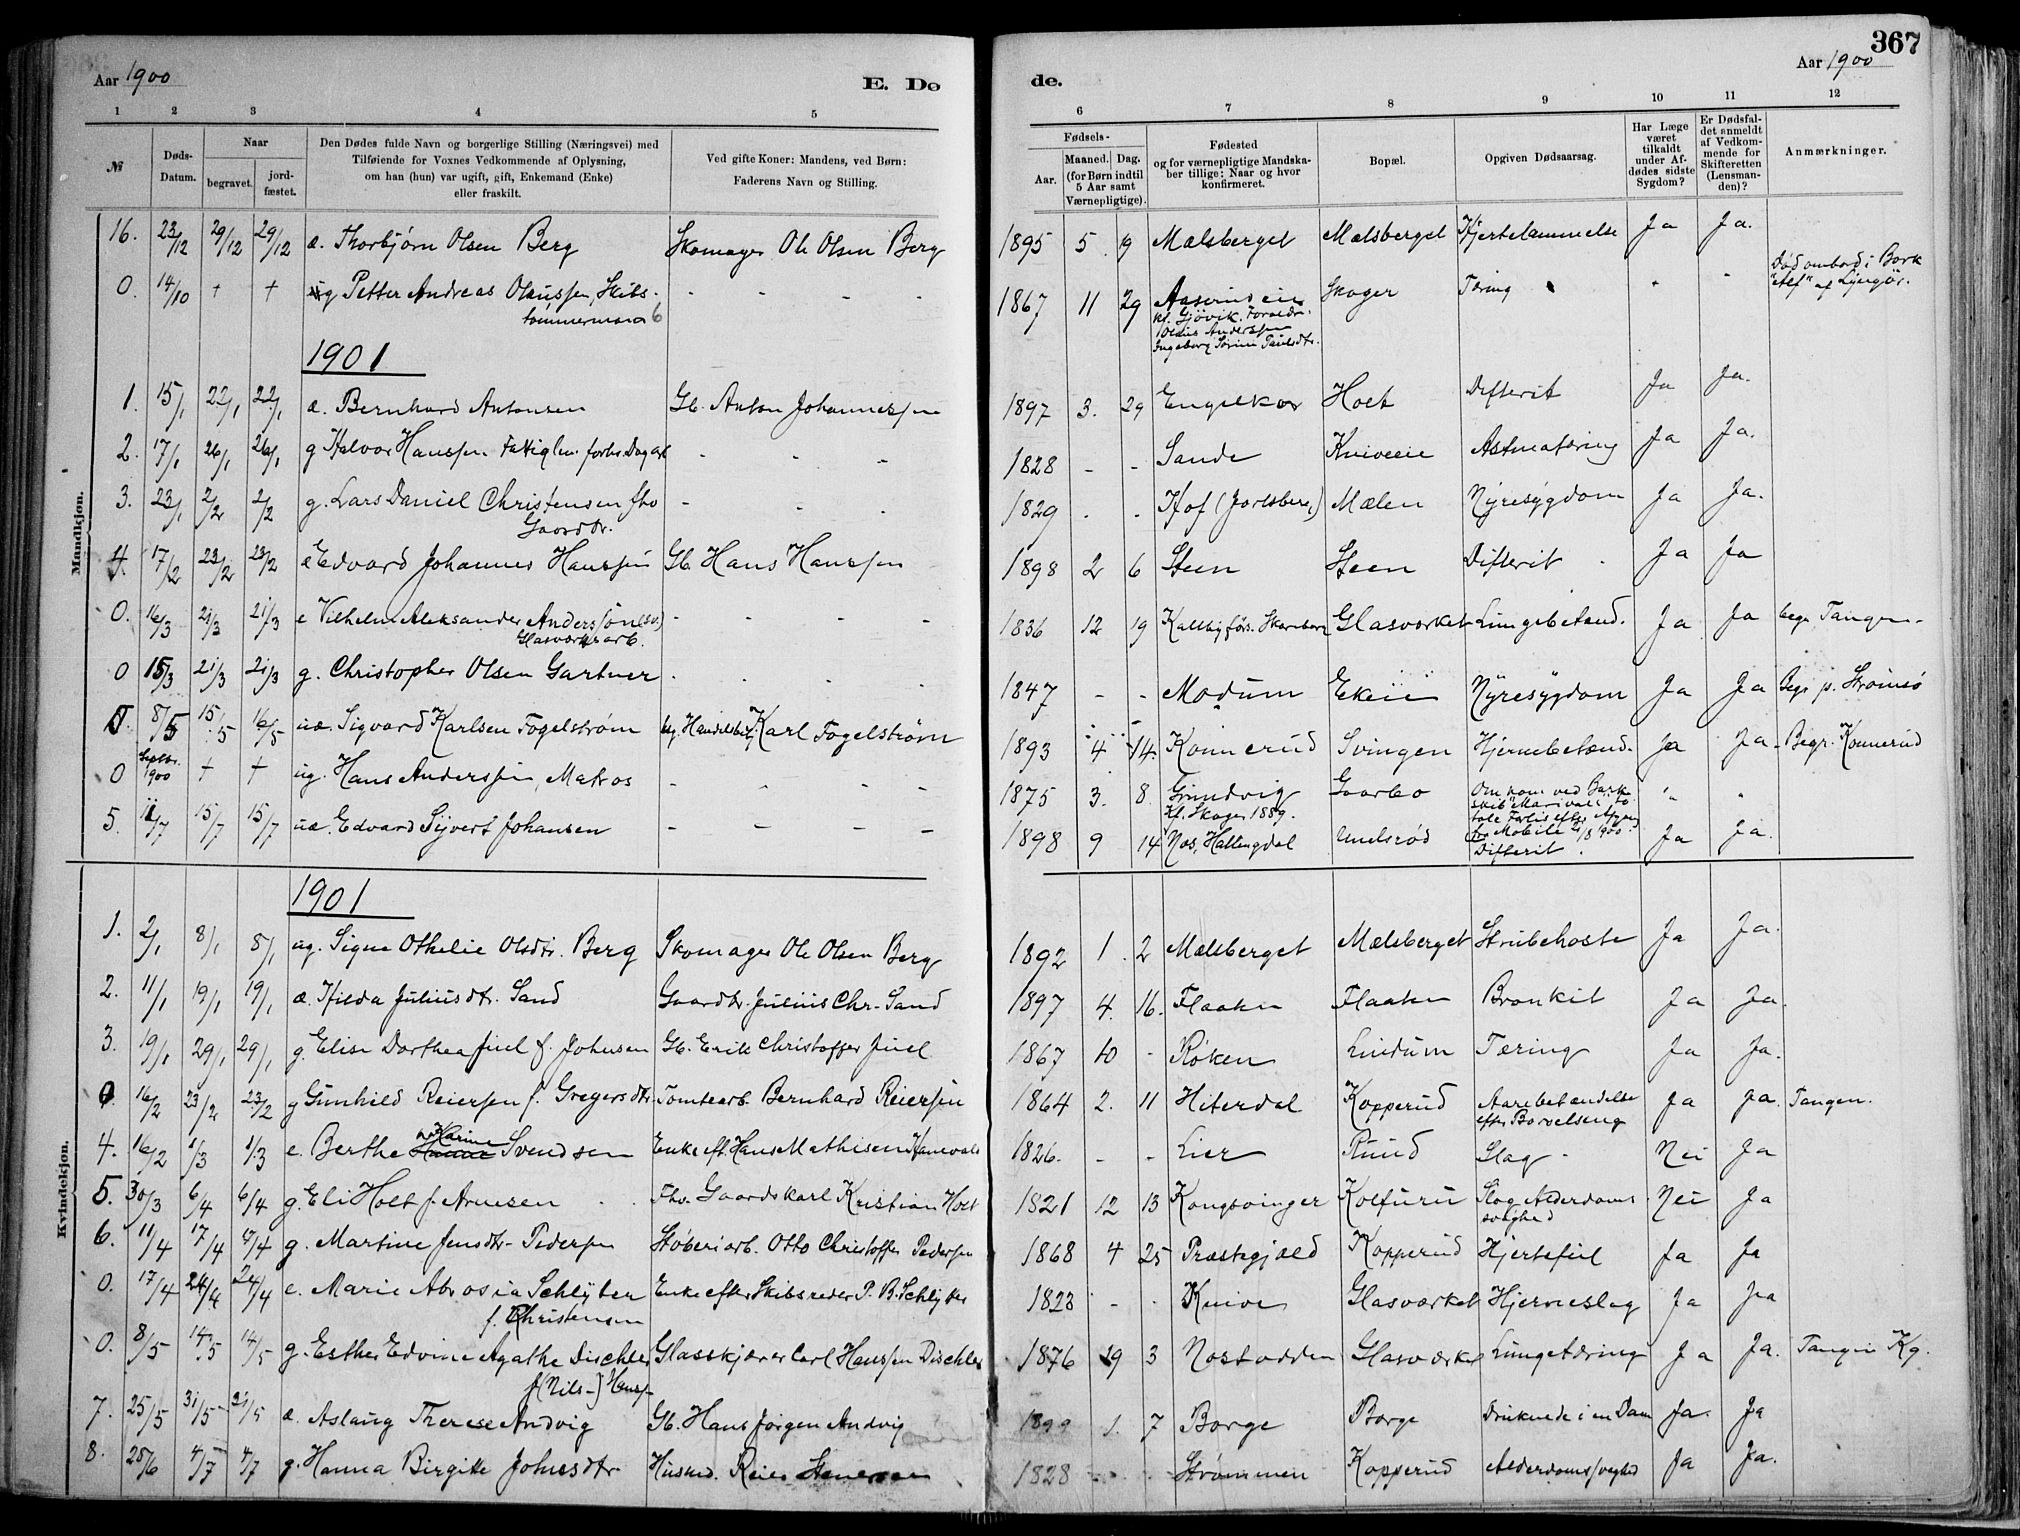 367
Aar 1900
E. Dø
de.
Aar 1900
1 2 3 4 5 6 7 8 9 10 11 12
№
Døds-Datum.
Naar
begravet.
jord-fæstet.
Den Dødes fulde Navn og borgerlige Stilling (Næringsvei) med
Tilføiende for Voxnes Vedkommende af Oplysning,
om han (hun) var ugift, gift, Enkemand (Enke)
eller fraskilt.
Ved gifte Koner: Mandens, ved Børn:
Faderens Navn og Stilling.
Fødsels-
Aar.
Maaned. Dag.
(for Børn indtil
5 Aar samt
Værnepligtige).
Fødested
og for værnepligtige Mandska-
ber tillige: Naar og hvor
konfirmeret.
Bopæl.
Opgiven Dødsaarsag.
Har Læge
været
tilkaldt
under Af-
dødes sidste
Sygdom?
Er Dødsfal-
det anmeldt
af Vedkom-
mende for
Skifteretten
(Lensman-
den)?
Anmærkninger.
Mandkjøn.
16. 23/12 29/12 29/12 æ. Thorbjørn Olsen Berg Skomager Ole Olsen Berg 1895 5 9 Mælsberget Mælsberget Hjertelammelse Ja Ja.
0. 14/10 + + ug Petter Andreas Olaussen, Skibs-
tømmermand - - - 1867 11 29 Aaserudeie Skoger Tæring " "
kf. Gjövik. Foræld.
Olaus Anderssen
Ingeborg Sørine Paulsdtr.
Død ombord i Bark
"Alf" af Lyngör.
1901
1. 15/1 22/1 22/1 æ. Bernhard Antonsen Gb. Anton Johannessen 1897 3. 29 Engelkor Holt Difterit Ja Ja.
2. 17/1 26/1 26/1 g Halvor Hanssen Fattiglem forhv. Dagarb. - - - 1828 - - Sande Kniveeie Astmatæring Ja Ja.
3. 23/1 2/2 2/2 g. Lars Daniel Christensen fhv
Gaardbr. - - - 1829 - - Hof (Jarlsberg) Mælen Nyresygdom Ja Ja.
4 17/2 23/2 23/2 æ Edvard Johannes Hanssen Gb. Hans Hanssen 1898 2 6 Steen Steen Difterit Ja Ja
0. 16/3 21/3 21/3 e Vilhelm Aleksander Andersson (sv.)
Glasværksarb. - - - - 1836 12 19 Kallby förs. Skaraborg Glasværket Lungebetænd. Ja Ja begr Tangen.
0 15/3 21/3 21/3 g. Christopher Olsen Gartner - - - - 1847 - - Modum Ekeie Nyresygdom Ja Ja Begr p. Strømsö
0. 8/5 15/5 16/5 uæ. Sigvard Karlsen Fogelstrøm Karl Fogelstrøm 1893 4 14. Konnerud Svingen Hjernebetænd. Ja Ja Begr. Konnerud
0 Septbr. 1900 + + ug. Hans Anderssen, Matros - - - - 1875 3. 8. Grundvig Gaarbo " "
Kf. Skoger 1889.
Omkom ved Bark-
skib "Marivale"s to-
tale Forlis efter Afgang
fra Mobile 21/8 1900.
5. 11/7 15/7 15/7 uæ. Edvard Sijvert Johansen - - - - 1898 9 14 Næs, Hallingdal Unelsrød Difterit. Ja Ja.
Kvindekjøn.
1901
1. 2/1 8/1 8/1 ug. Signe Othelie Olsdtr. Berg Skomager Ole Olsen Berg 1892 1. 2 Mælsberget Mælsberget Strubehoste Ja Ja.
2. 11/1 19/1 19/1 æ. Hilda Juliusdtr. Sand Gaardbr. Julius Chr. Sand 1897 4. 16. Flaaten Flaaten Bronkit Ja Ja.
3. 19/1 29/1 29/1 g. Elise Dorthea Juel f. Johnsen Gb. Erik Christoffer Juel 1867 10 - Røken Lindum Tæring Ja Ja.
0. 16/2 23/2 23/2 g Gunhild Reiersen f. Gregersdtr. Tomtearb. Bernhard Reiersen 1864 2. 11 Hiterdal Kopperud Aarebetændelse
efter Barselseng Ja Ja. Tangen.
4. 16/2 1/3 1/3 e. Berthe Karine Svendsen Enke eft. Hans Mathisen Hanevold 1826. - - Lier Ruud Slag Nei Ja
5. 30/3 6/4 6/4 g. Eli Holt f. Arnesen Fhv. Gaardskarl Kristian Holt 1821 12 13 Kongsvinger Kolfuru Slag Alderdoms
svaghed Nei Ja
6. 11/4 17/4 17/4 g. Martine Jensdtr. Pedersen Støberiarb. Otto Christoffer Pedersen 1868 4 25 Præstegjæld Kopperud Hjertefeil Ja Ja
0. 17/4 24/4 24/4 e. Marie Abrosia Schlyter
f. Christensen Enke efter Skibsreder P. B. Schlyter 1823 - - Knive Glasværket Hjerneslag Ja Ja
0. 8/5 14/5 14/5 g. Esther Edvine Agathe Dischler
f (Nils-) Hanss- Glasskjærer Carl Hanssen Dischler 1876 9 3 Nøstodden Glasværket Lungetæring Ja Ja. Tangen Kg.
7. 25/5 31/5 31/5 æ. Aslaug Therese Andvig Gb. Hans Jörgen Andvig 1899 1. 7 Borge Borge Druknede i en Dam Ja. Ja
8. 28/6 4/7 4/7 g. Hanna Birgitte Johnsdtr Husmd. Reier Stenersen 1828 - - Strømmen Kopperud Alderdomssvaghed Ja Ja.